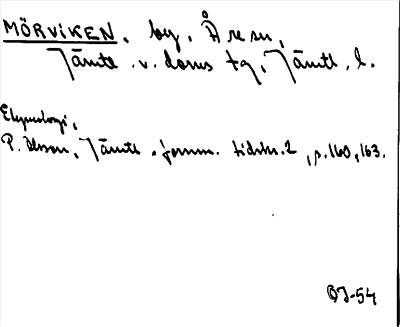 MÖRVIKEN, by, Åre sn,
Jämtl. v. doms tg, Jämtl. l.
Etymologi,
P. Olsson, Jämtl. fornm. tidskr. 2, s. 160, 163.
OJ-54